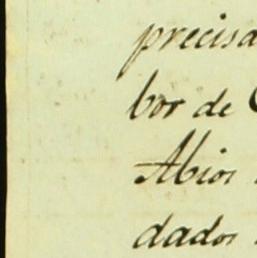 precisa
bor de
Abios
dados